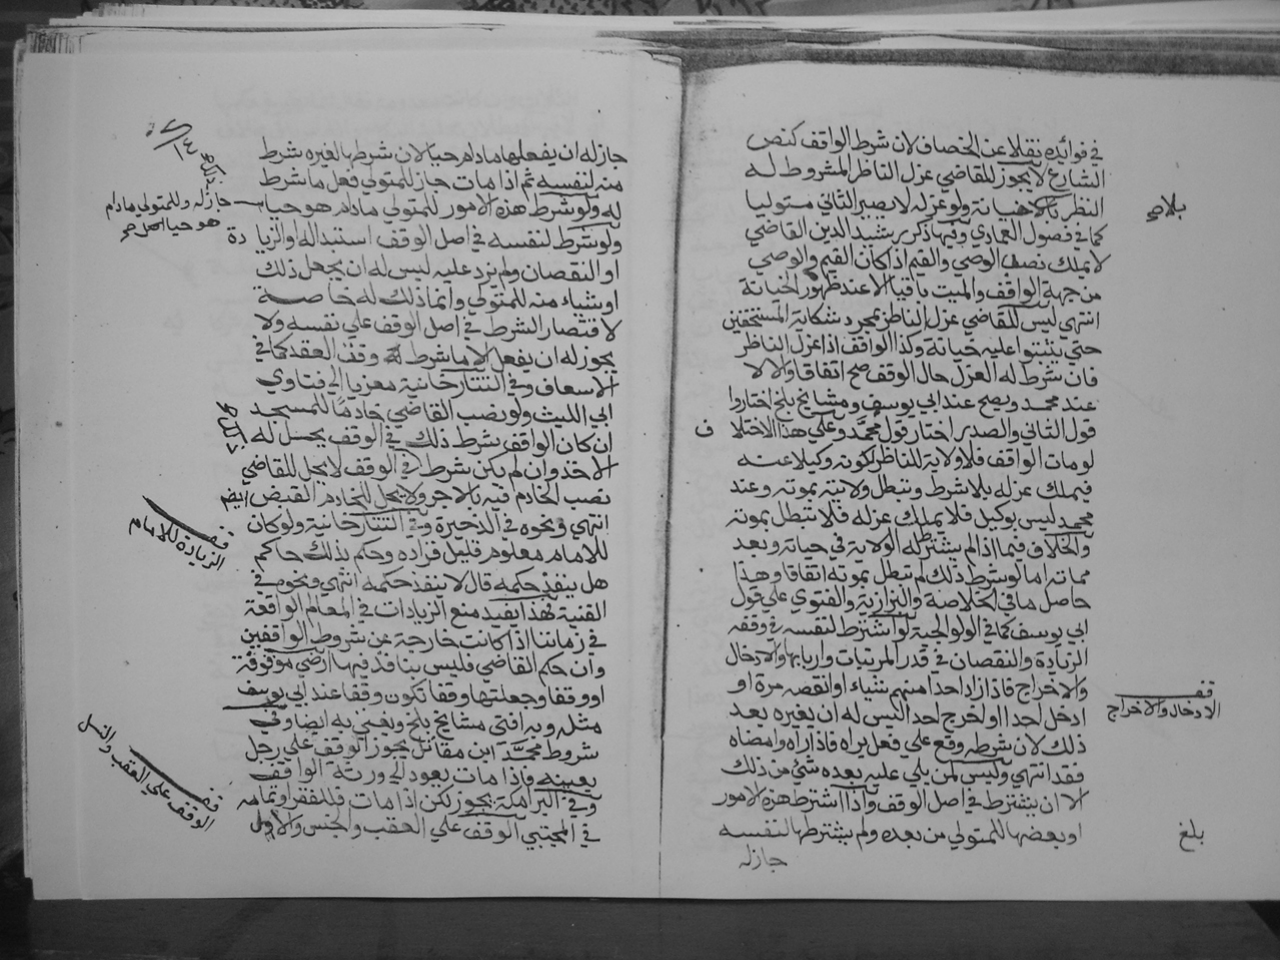 في فوائده نقلا عن الخصاف لان شرط الواقف كنص
الشارع لا يجوز للقاضي عزل الناظر المشروط له
النظر بلا خيانة ولو عزله لا يصير الثاني متوليا
كما في فصول العمادي وفيها ذكر رشيد الدين القاضي
لا يملك نصب الوصي والقيم اذا كان القيم والوصي
من جهة الواقف والميت باقيا الا عند ظهور الخيانة
انتهي ليس للقاضي عزل الناظر بمجرد شكاية المستحقين
حتي يثبتوا عليه خيانة وكذا الواقف اذا عزل الناظر
فان شرط له العزل حال الوقف صح اتفاقا والا لا
عند محمد ويصح عند ابي يوسف ومشايخ بلخ اختاروا
قول الثاني والصدر اختار قول محمد وعلي هذا الاختلا ف
لو مات الواقف فلا ولاية للناظر لكونه وكيلا عنه
فيملك عزله بلا شرط وتبطل ولايته بموته وعند
محمد ليس بوكيل فلا يملك عزله فلا تبطل بموته
والخلاف فيما اذا لم يشترط له الولاية في حياته وبعد
مماته اما لو شرط ذلك لم تبطل بموته اتفاقا وهذا
حاصل ما في الخلاصة والبزازية والفتوي علي قول
ابي يوسف كما في الولوالجية لو اشترط لنفسه في وقفه
الزيادة والنقصان في قدر المرتبات واربابها والادخال
والاخراج فاذا زاد احدا منهم شيئا او انقصه مرة او
ادخل احدا او اخرج احدا ليس له ان يغيره بعد
ذلك لان شرطه وقع علي فعل يراه فاذا راه وامضاه
فقد انتهي وليس لمن يلي عليه بعده شئ من ذلك
الا ان يشترط في اصل الوقف واذا اشترط هذه الامور
او بعضها للمتولي من بعده ولم يشترطها لنفسه
جاز له
قف
الادخال والاخراج
بلغ
جاز له ان يفعلها ما دام حيا لان شرطها لغيره شرط
منه لنفسه ثم اذا مات جاز للمتولي فعل ما شرط
له ولو شرط هذه الامور للمتولي ما دام هو حيا
ولو شرط لنفسه في اصل الوقف استبداله او الزيا دة
او النقصان ولم يزد عليه ليس له ان يجعل ذلك
او شيئا منه للمتولي وانما ذلك له خاصة
لاقتصار الشرط في اصل الوقف علي نفسه ولا
يجوز له ان يفعل الا ما شرط له وقف العقد كما في
الاسعاف وفي التتارخانية معزيا الي فتاوي
ابي الليث ولو نصب القاضي خادما للمسجد
ان كان الواقف شرط ذلك في الوقف يحل له
الاخذ وان لم يكن شرط في الوقف لا يحل للقاضي
نصب الخادم فيه بالاجر ولا يحل للخادم القبض ايضا
انتهي ونحوه في الذخيرة وفي التتارخانية ولو كان
للامام معلوم قليل فزاده وحكم بذلك حاكم
هل ينفذ حكمه قال لا ينفذ حكمه انتهي ونحوه في
القنية فهذا يفيد منع الزيادات في المعالم الواقعة
في زماننا اذا كانت خارجة عن شروط الواقفين
وان حكم القاضي فليس بنافذ فيها ارضي موقوفة
او وقفا وجعلتها وقفا تكون وقفا عند ابي يوسف
مثله وبه افتي مشايخ بلخ ويفتي به ايضا وفي
شروط محمد ابن مقاتل يجوز الوقف علي رجل
بعينه فاذا مات يعود الي ورثة الواقف
وفي البرامكة يجوز لكن اذا مات فللفقرا وتمامه
في المجتبي الوقف علي العقب والجنس والاول
جاز له وللمتولي ما دام
هو حيا
قف
الزيادة للامام
قف
الوقف علي العقب والنسل